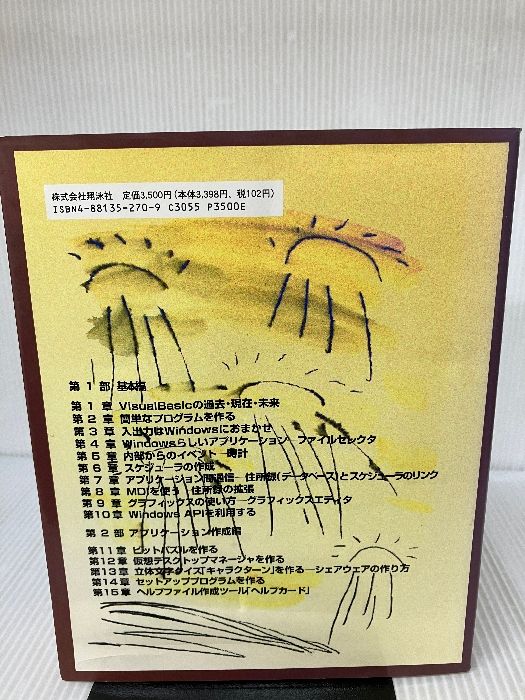 株式会社翔泳社 定価3,500円(本体3,398円、税102円)
ISBN4-88135-270-9 C3055 P3500E
第1部 基本編
第1章 VisualBasicの過去・現在・未来
第2章 簡単なプログラムを作る
第3章 入出力はWindowsにおまかせ
第4章 Windowsらしいアプリケーション―ファイルセレクタ
第5章 内部からのイベント―時計
第6章 スケジューラの作成
第7章 アプリケーション間通信―住所録(データベース)とスケジューラのリンク
第8章 MDIを使う―住所録の拡張
第9章 グラフィックスの使い方―グラフィックスエディタ
第10章 Windows APIを利用する
第2部 アプリケーション作成編
第11章 ビットパズルを作る
第12章 仮想デスクトップマネージャを作る
第13章 立体文字クイズ「キャラクターン」を作る―シェアウェアの作り方
第14章 セットアッププログラムを作る
第15章 ヘルプファイル作成ツール「ヘルプカード」